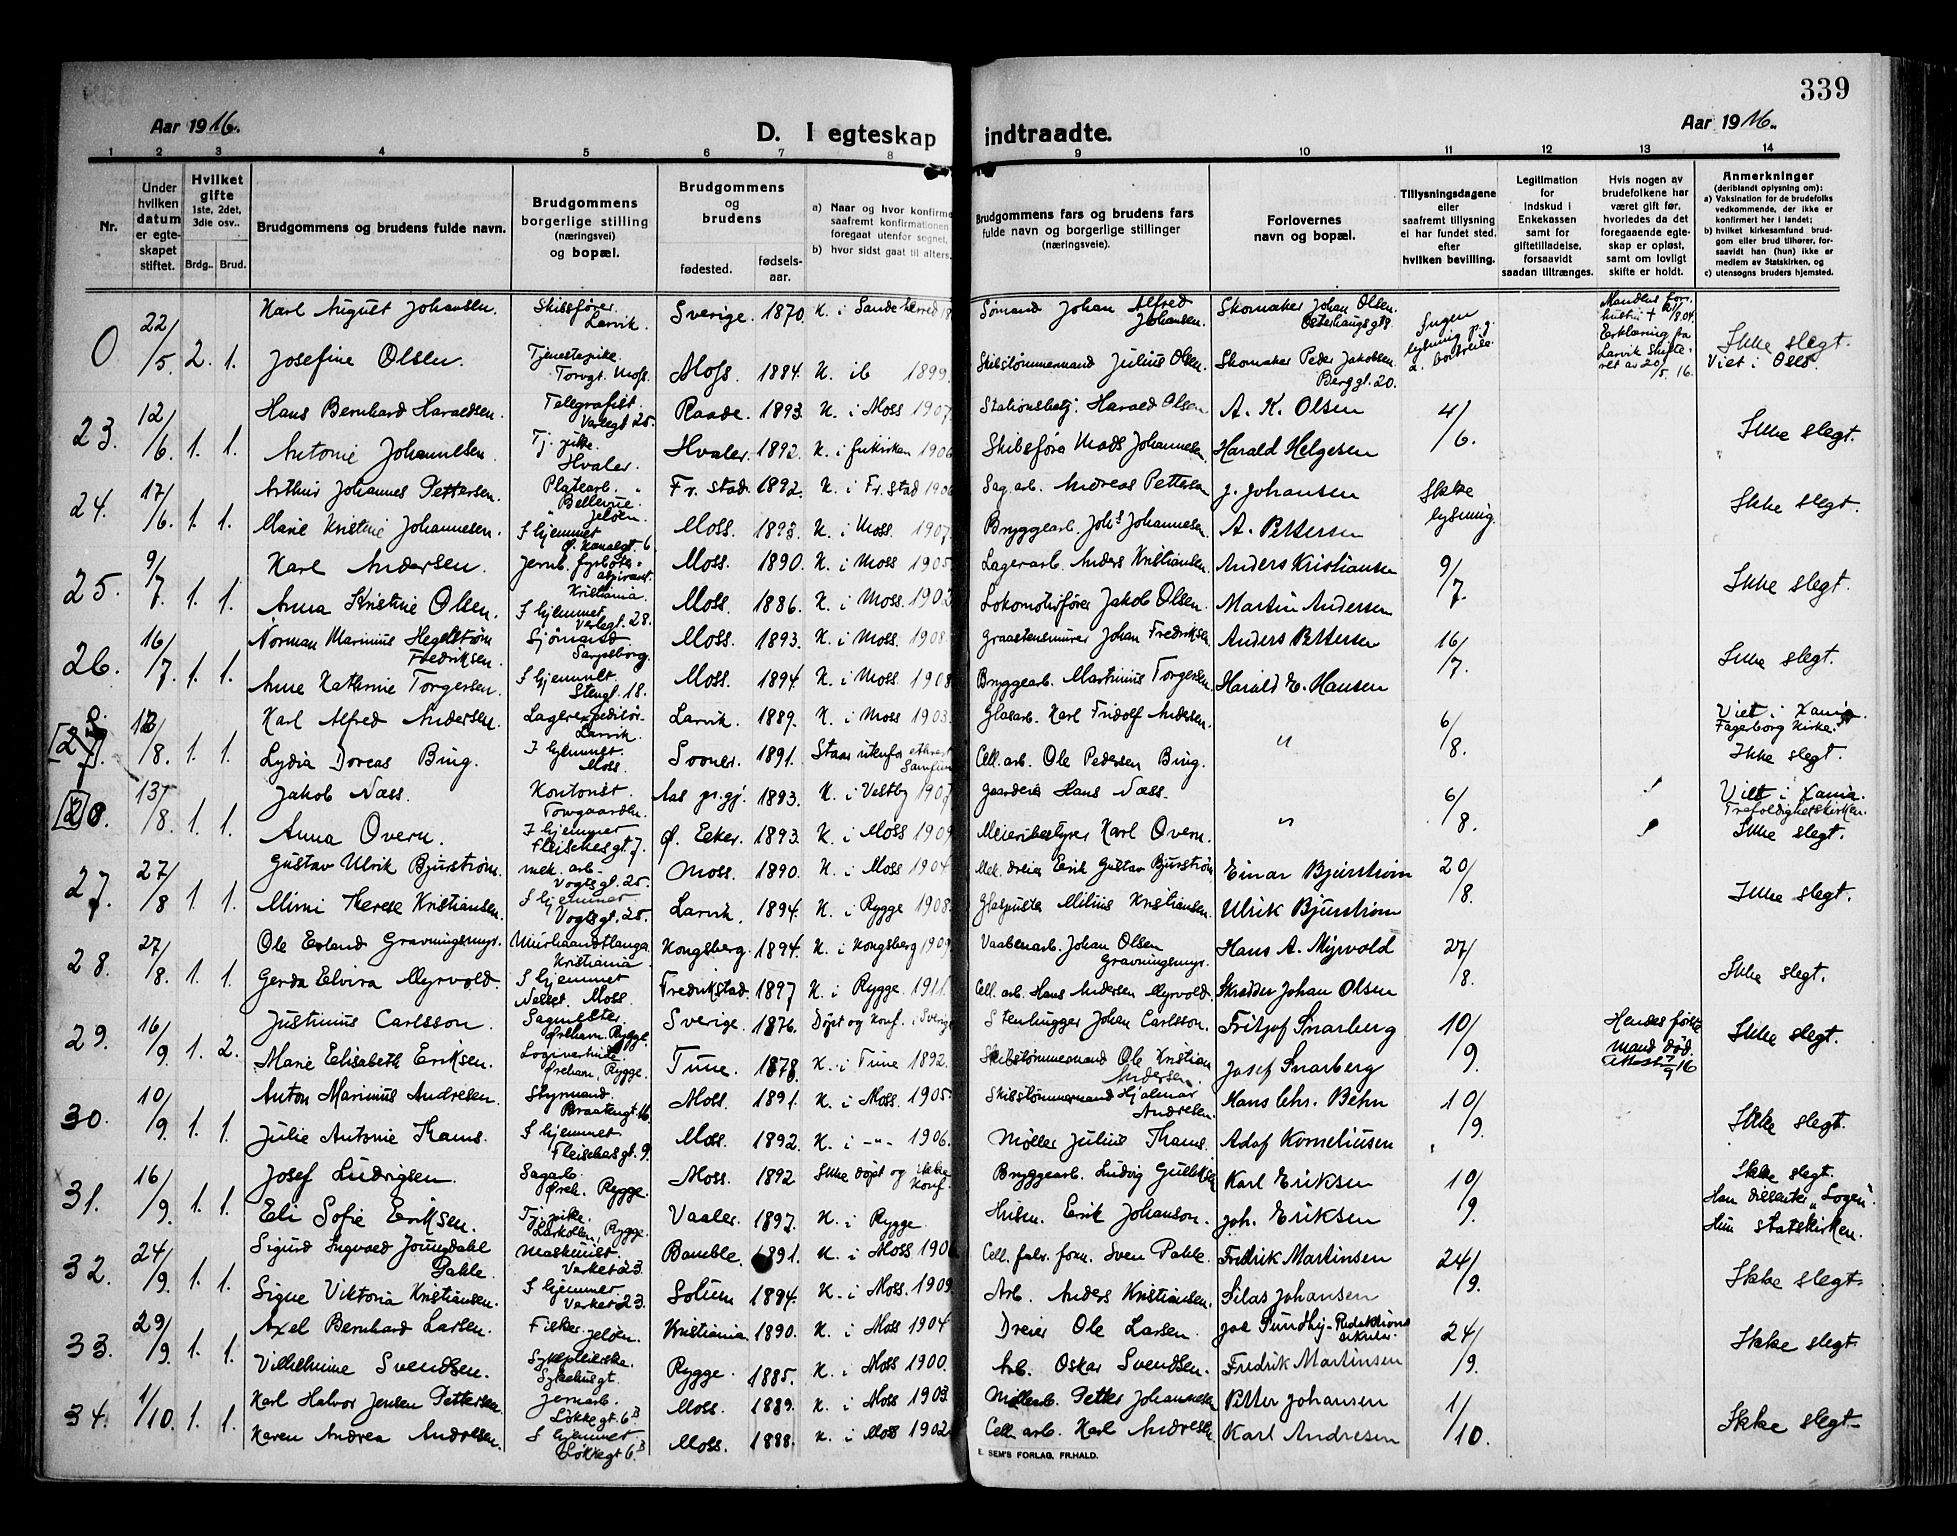 339
Aar 1916.
D. I egteskap indtraadte.
Aar 1916.
1 2 3 4 5 6 7 8 9 10 11 12 13 14
Nr.
Under hvilken datum er egteskapet stiftet.
Hvilket gifte 1ste, 2det, 3die osv..
Brdg.. Brud.
Brudgommens og brudens fulde navn.
Brudgommens borgerlige stilling (næringsvei) og bopæl.
Brudgommens og brudens
fødested. fødselsaar.
a) Naar og hvor konfirme
saafremt konfirmationen
foregaat utenfor segnet,
b) hvor sidst gaat til alters.
Brudgommens fars og brudens fars fulde navn og borgerlige stillinger (næringsveie).
Forlovernes navn og bopæl.
Tillysningsdagene eller saafremt tillysning ei har fundet sted, efter hvilken bevilling.
Legitimation for indskud i Enkekassen samt for giftetilladelse, forsaavidt saadan tiltrænges.
Hvis nogen av brudefolkene har været gift før, hvorledes da det foregaaende egteskap er opløst, samt om lovligt skifte er holdt.
Anmerkninger (deriblandt oplysning om): a) Vaksination for de brudefolks vedkommende, der ikke er konfirmert her i landet; b) hvilket kirkesamfund brudgom eller brud tilhører, forsaavidt han (hun) ikke er medlem av Statskirken, og c) utensogns bruders hjemsted.
0 22/5 2. 1. Karl August Johansen. Skibsfører Larvik. Sverige. 1870. K. i Sandeherred 18 Sømand Johan Alfred Johansen. Skomaker Johan Olsen Østerhausgt 8 Ingen lysning p.g. a. bortreise Mandens forr. hustru + 8.04. Erklæring fra Larvik Skifteret av 20/5 16. Ikke slegt. Viet i Oslo.
Josefine Olsen. Tjenestepike. Torvgt. Moss. Moss. 1884. K. ib 1899. Skibstømmermand Julius Olsen. Skomaker Peder Jakobsen Berggt. 20.
23. 12/6 1. 1. Hans Bernhard Haraldsen. Telegrafist. Varlegt 25. Raade. 1893. K. i Moss 1907. Stationsbetj. Harald Olsen A. K. Olsen 4/6. Ikke slegt.
Antonie Johannesen. Tj. pike. Hvaler. Hvaler. 1892. K. i frikirken 1906 Skibsfører Mads Johannesen. Harald Helgesen
24. 17/6. 1. 1. Arthur Johannes Pettersen. Platearb. Bellevue Jeløen. Fr. stad. 1892. K. i Fr. stad 1906 Sag.arb. Andreas Pettersen J. Johansen Ikke lysning. Ikke slegt.
Marie Kristine Johannesen. I hjemmet Ø. Kanalgt. 6 Moss. 1893. K. i Moss. 1907. Bryggearb. Johs Johannesen. A. Pettersen
25. 9/7. 1. 1. Karl Andersen. Jernb. fyrbøter-aspirant. Kristiania. Moss. 1890. K. i Moss 1905. Lagerarb. Anders Kristiansen. Anders Kristiansen 9/7. Ikke slegt.
Anna Kristine Olsen. I hjemmet Varlegt. 28. Moss. 1886. K. i Moss. 1902. Lokomotivfører Jakob Olsen. Martin Andersen
26. 16/7. 1. 1. Norman Marinius Hegelstrøm Fredriksen. Sjømand Sarpsborg. Moss. 1893. K. i Moss. 1908. Graastensmurer Johan Fredriksen Anders Pettersen 16/7. Ikke slegt.
Anne Kathrine Torgersen. I hjemmet. Stengt. 18. Moss. 1894. K. i Moss 1908. Bryggearb. Martinius Torgersen Harald E. Hansen
[27] /8. 1. 1. Karl Alfred Andersen. Lagerexpeditør. Larvik. Larvik. 1889. K. i Moss 1903. Glasarb. Karl Fridolf Andersen. " 6/8. Viet i Xania. Fagerborg Kirke.
Lydia Doreas Bing. I hjemmet. Moss. Soner. 1891. Staar utenfor ethvert Samfund Cell. arb. Ole Pedersen Bing. Ikke slegt.
[28]. 13/8. 1. 1. Jakob Næss. Kontorist. Torvgaarden. Aas pr.gj. 1893. K. i Vestby 1907 Gaardeier Hans Næss. " 6/8. Viet i Xania. Trefoldighetskirken.
Anna Overn. I hjemmet Fleischesgt 7. Ø. Eeker. 1893. K. i Moss 1909. Meieribestyrer Karl Overn. Ikke slegt.
27. 27/8 1. 1. Gustav Ulrik Bjurstrøm. mek. arb. Vogtsgt. 25. Moss. 1890. K. i Moss 1904. Mek. dreier Erik Gustav Bjurstrøm Einar Bjurstrøm 20/8. Ikke slegt.
Mimi Therese Kristiansen. I hjemmet Vogtsgt. 25. Larvik. 1894. K. i Rygge 1908. Glaspuster Milius Kristiansen. Ulrik Bjurstrøm
28. 27/8. 1. 1. Ole Erland Gravningsmyr. Murhaandtlanga Kristiania. Kongsberg. 1894. K. i Kongsberg 1909 Vaabenarb. Johan Olsen Gravningsmyr. Hans A. Myrvold 27/8. Ikke slegt.
Gerda Elvira Myrvold. I hjemmet Nesset. Moss. Fredrikstad. 1897 K. i Rygge. 1911. Cell. arb. Hans Andersen Myrvold. Skredder Johan Olsen
29. 16/9. 1. 2. Justinius Carlsson. Sagmester Ørehavn. Rygge. Sverige. 1876. Døpt og konf. i Sverige Stenhugger Johan Carlsson. Fritjof Snarberg 10/9. Hendes første mand død. Attest 7/9 16 Ikke slegt.
Marie Elisabeth Eriksen. Logivertinde. Ørehavn, Rygge. Tune. 1878. K. i Tune 1892. Skibstømmermand Ole Kristian Andersen. Josef Snarberg
30. 10/9. 1. 1. Anton Marinius Andresen. Styrmand. Braatengt 16. Moss. 1891. K. i Moss. 1905. Skibstømmermand Hjalmar Andresen. Hans Chr. Behn 10/9. Ikke slegt.
Julie Antonie Thams. I hjemmet Fleischesgt. 9. Moss. 1892. K. i -"- 1906. Møller Julius Thams. Adof Korneliusen
31. 16/9. 1. 1. Josef Ludvigsen. Sagarb. Øreh. Rygge. Moss. 1892 Ikke døpt og ikke konf. Bryggearb. Ludvig Gulliksen Karl Eriksen 10/9. Ikke slegt. Han dissenter "Logen". Hun statskirken.
Eli Sofie Eriksen. Tj. pike. Larkollen, Rygge Vaaler. 1897. K. i Rygge. Husm. Erik Johanson. Joh. Eriksen
32. 24/9. 1. 1. Sigurd Ingvald Jonundahl Pahle. Maskinist. Værket 23. Bamble. 1891. K. i Moss Cell. fabr. form. Sven Pahle. Fredrik Martinsen 24/9. Ikke slegt.
Signe Viktoria Kristiansen. I hjemmet Værket 23. Solum 1894. K. i Moss. 1909. Arb. Anders Kristiansen. Silas Johansen
33. 29/9. 1. 1. Axel Bernhard Larsen. Fisker. Jeløen. Kristiania. 1890. K. i Moss 1904 Dreier Ole Larsen. Joe Sundby. Redaktionssekretær 24/9. Ikke slegt
Vilhelmine Svendsen. Sykepleierske. Sykehusgt. Rygge. 1885. K. i Moss 1900. Arb. Oskar Svendsen. Fredrik Martinsen
34. 1/10. 1. 1. Karl Halvor Jensen Pettersen. Jernarb. Løkkegt. 6B Moss. 1889. K. i Moss 1903. Møllearb. Petter Johannesen Petter Johansen 1/10. Ikke slegt
Karen Andrea Andresen. I hjemmet Løkkegt 6.B Moss. 1888. K. i Moss 1902. Cell. arb. Karl Andresen Karl Andresen
E. SEM'S FORLAG, FR.HALD.